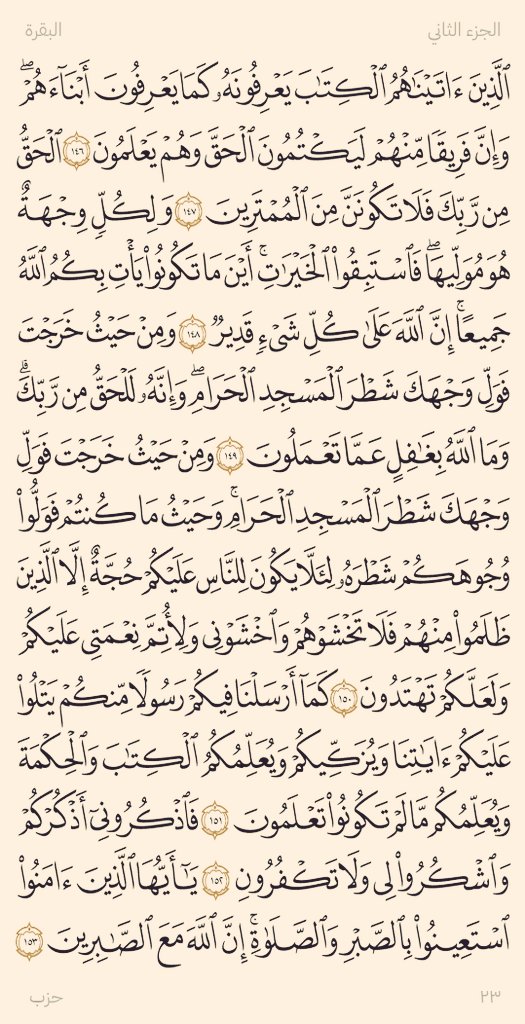 الجزء الثاني
البقرة
ٱلَّذِينَ ءَاتَيْنَٰهُمُ ٱلْكِتَٰبَ يَعْرِفُونَهُۥ كَمَا يَعْرِفُونَ أَبْنَآءَهُمْۖ
وَإِنَّ فَرِيقًا مِّنْهُمْ لَيَكْتُمُونَ ٱلْحَقَّ وَهُمْ يَعْلَمُونَ ١٤٦ ٱلْحَقُّ
مِن رَّبِّكَ فَلَا تَكُونَنَّ مِنَ ٱلْمُمْتَرِينَ ١٤٧ وَلِكُلٍّ وِجْهَةٌ
هُوَ مُوَلِّيهَاۖ فَٱسْتَبِقُوا۟ ٱلْخَيْرَٰتِۚ أَيْنَ مَا تَكُونُوا۟ يَأْتِ بِكُمُ ٱللَّهُ
جَمِيعًاۚ إِنَّ ٱللَّهَ عَلَىٰ كُلِّ شَىْءٍ قَدِيرٌ ١٤٨ وَمِنْ حَيْثُ خَرَجْتَ
فَوَلِّ وَجْهَكَ شَطْرَ ٱلْمَسْجِدِ ٱلْحَرَامِۖ وَإِنَّهُۥ لَلْحَقُّ مِن رَّبِّكَۗ
وَمَا ٱللَّهُ بِغَٰفِلٍ عَمَّا تَعْمَلُونَ ١٤٩ وَمِنْ حَيْثُ خَرَجْتَ فَوَلِّ
وَجْهَكَ شَطْرَ ٱلْمَسْجِدِ ٱلْحَرَامِۚ وَحَيْثُ مَا كُنتُمْ فَوَلُّوا۟
وُجُوهَكُمْ شَطْرَهُۥ لِئَلَّا يَكُونَ لِلنَّاسِ عَلَيْكُمْ حُجَّةٌ إِلَّا ٱلَّذِينَ
ظَلَمُوا۟ مِنْهُمْ فَلَا تَخْشَوْهُمْ وَٱخْشَوْنِى وَلِأُتِمَّ نِعْمَتِى عَلَيْكُمْ
وَلَعَلَّكُمْ تَهْتَدُونَ ١٥٠ كَمَآ أَرْسَلْنَا فِيكُمْ رَسُولًا مِّنكُمْ يَتْلُوا۟
عَلَيْكُمْ ءَايَٰتِنَا وَيُزَكِّيكُمْ وَيُعَلِّمُكُمُ ٱلْكِتَٰبَ وَٱلْحِكْمَةَ
وَيُعَلِّمُكُم مَّا لَمْ تَكُونُوا۟ تَعْلَمُونَ ١٥١ فَٱذْكُرُونِىٓ أَذْكُرْكُمْ
وَٱشْكُرُوا۟ لِى وَلَا تَكْفُرُونِ ١٥٢ يَٰٓأَيُّهَا ٱلَّذِينَ ءَامَنُوا۟
ٱسْتَعِينُوا۟ بِٱلصَّبْرِ وَٱلصَّلَوٰةِۚ إِنَّ ٱللَّهَ مَعَ ٱلصَّٰبِرِينَ ١٥٣
٢٣
حزب